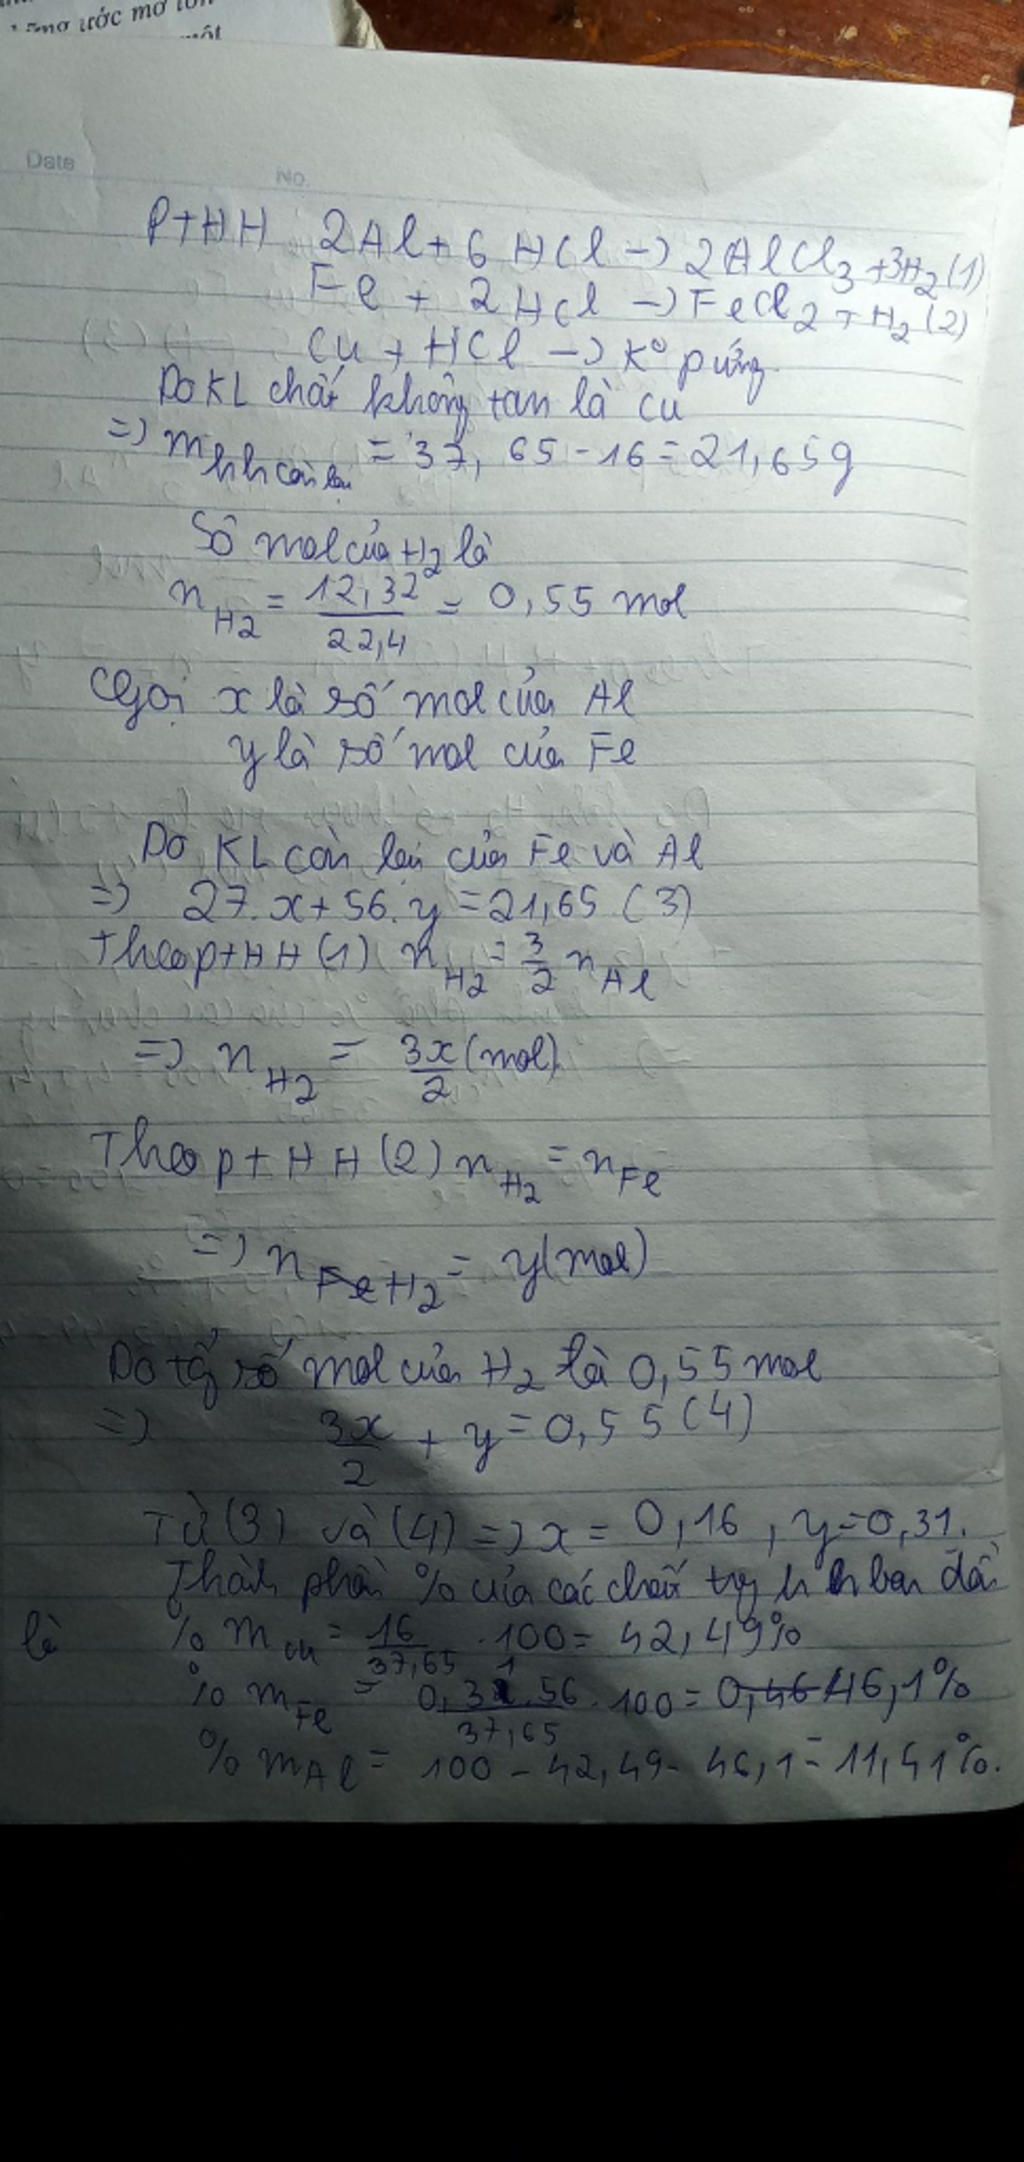 ước mơ
một
Date
No.
PTHH 2Al + 6HCl -> 2AlCl3 + 3H2 (1)
Fe + 2HCl -> FeCl2 + H2 (2)
Cu + HCl -> K° pứng
Do KL chất không tan là Cu
=> mhh còn lại = 37,65 - 16 = 21,65g
Số mol của H2 là
nH2 = 12,32/22,4 = 0,55 mol
Gọi x là số mol của Al
y là số mol của Fe
Do KL còn lại của Fe và Al
=> 27.x + 56.y = 21,65 (3)
Theo ptHH (1) nH2 = 3/2 nAl
=> nH2 = 3x/2 (mol)
Theo ptHH (2) nH2 = nFe
=> nH2 = y (mol)
Do tổng số mol của H2 là 0,55 mol
=> 3x/2 + y = 0,55 (4)
Từ (3) và (4) => x = 0,16, y = 0,31.
Thành phần % của các chất trg hh ban đầu
là % mCu = 16/37,65 . 100 = 42,49%
% mFe = 0,31.56/37,65 . 100 = 46,1%
% mAl = 100 - 42,49 - 46,1 = 11,41%.